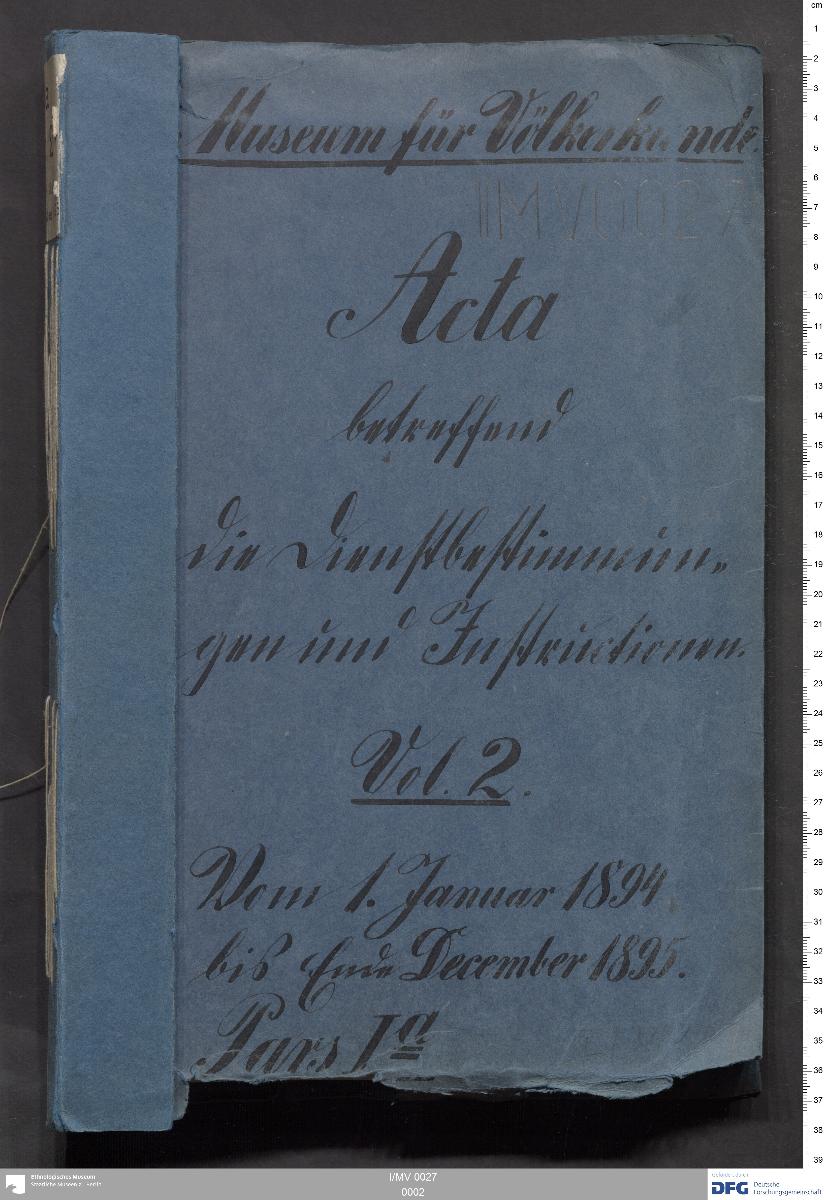 Museum für Völkerkunde.
I/MV 0027
Acta
betreffend
die Dienstbestimmun„
gen und Instructionen.
Vol. 2.
Vom 1. Januar 1894.
bis Ende December 1895.
Pars Ia
cm
1
2
3
4
5
6
7
8
9
10
11
12
13
14
15
16
17
18
19
20
21
22
23
24
25
26
27
28
29
30
31
32
33
34
35
36
37
38
39
Ethnologisches Museum
Staatliche Museen zu Berlin
I/MV 0027
0002
DFG Deutsche
Forschungsgemeinschaft